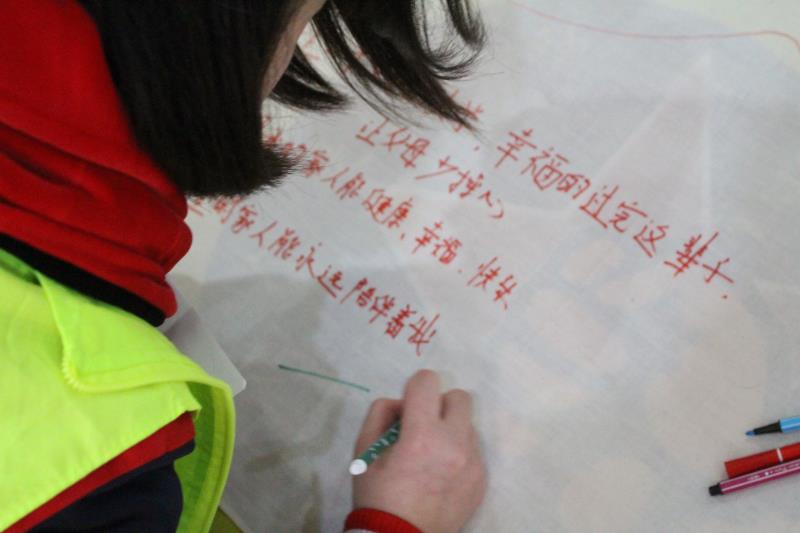 幸福的过完这辈子.
让父母少操心
家人能健康,幸福、快乐
的家人能永远陪伴着我